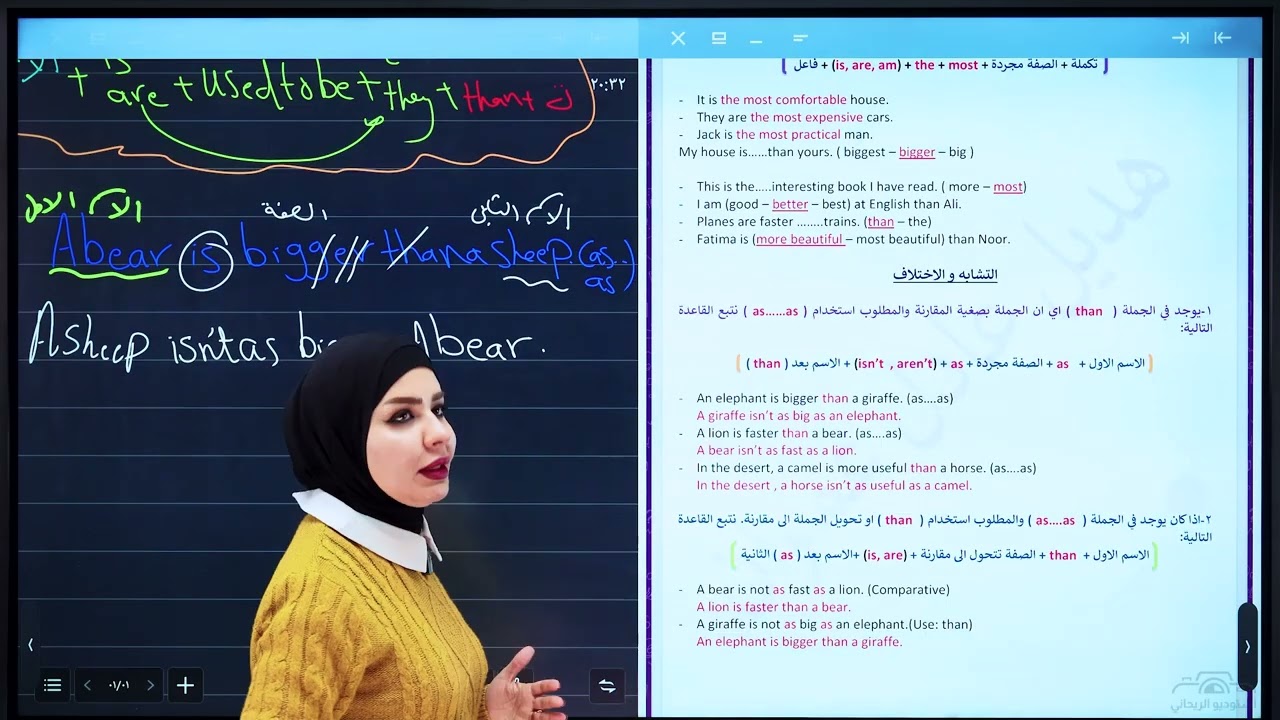 + is
are + used to be + they + than + ن
٢٠:٣٢
الاسم الاول الصفة الاسم الثاني
A bear is bigger than a sheep. (as..
as)
A sheep isn't as big A bear.
٠١/٠١
{ فاعل + (is, are, am) + the + most + تكملة + الصفة مجردة }
- It is the most comfortable house.
- They are the most expensive cars.
- Jack is the most practical man.
My house is......than yours. ( biggest – bigger – big )
- This is the.....interesting book I have read. ( more – most)
- I am (good – better – best) at English than Ali.
- Planes are faster ........trains. (than – the)
- Fatima is (more beautiful – most beautiful) than Noor.
التشابه و الاختلاف
١-يوجد في الجملة ( than ) اي ان الجملة بصغية المقارنة والمطلوب استخدام ( as......as ) نتبع القاعدة
التالية:
{ الاسم الاول + as + الصفة مجردة + as + (isn't , aren't) + الاسم بعد ( than ) }
- An elephant is bigger than a giraffe. (as....as)
A giraffe isn't as big as an elephant.
- A lion is faster than a bear. (as....as)
A bear isn't as fast as a lion.
- In the desert, a camel is more useful than a horse. (as....as)
In the desert , a horse isn't as useful as a camel.
٢-اذا كان يوجد في الجملة ( as....as ) والمطلوب استخدام ( than ) او تحويل الجملة الى مقارنة. نتبع القاعدة
التالية:
{ الاسم الاول + than + الصفة تتحول الى مقارنة + (is, are) +الاسم بعد ( as ) الثانية }
- A bear is not as fast as a lion. (Comparative)
A lion is faster than a bear.
- A giraffe is not as big as an elephant.(Use: than)
An elephant is bigger than a giraffe.
استوديو الريحاني